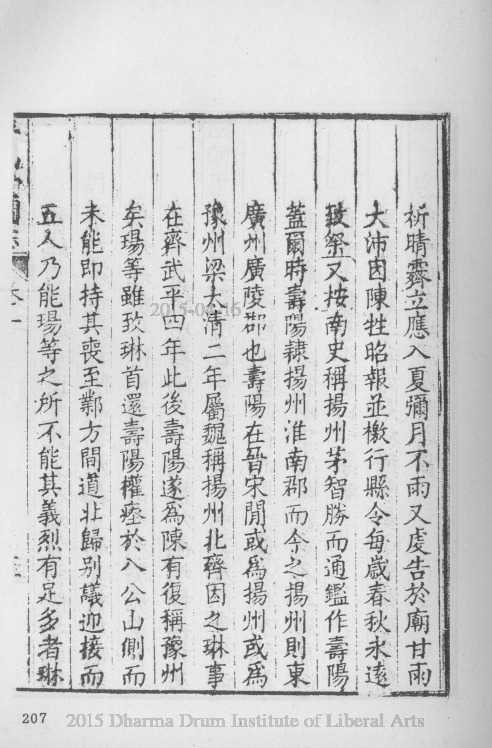 祈晴霽立應入夏彌月不雨又虔告於廟甘雨
大沛因陳牲昭報並檄行縣令每歲春秋永遠
致祭又按南史稱揚州茅智勝而通鑑作壽陽
蓋爾時壽陽隸揚州淮南郡而今之揚州則東
廣州廣陵郡也壽陽在晉宋間或為揚州或為
豫州梁太清二年屬魏稱揚州北齊因之琳事
在齊武平四年此後壽陽遂為陳有復稱豫州
矣瑒等雖致琳首還壽陽權瘞於八公山側而
未能即持其喪至鄴方間道北歸別議迎接而
五人乃能瑒等之所不能其義烈有足多者琳
卷一
207
2015-04-16
2015 Dharma Drum Institute of Liberal Arts